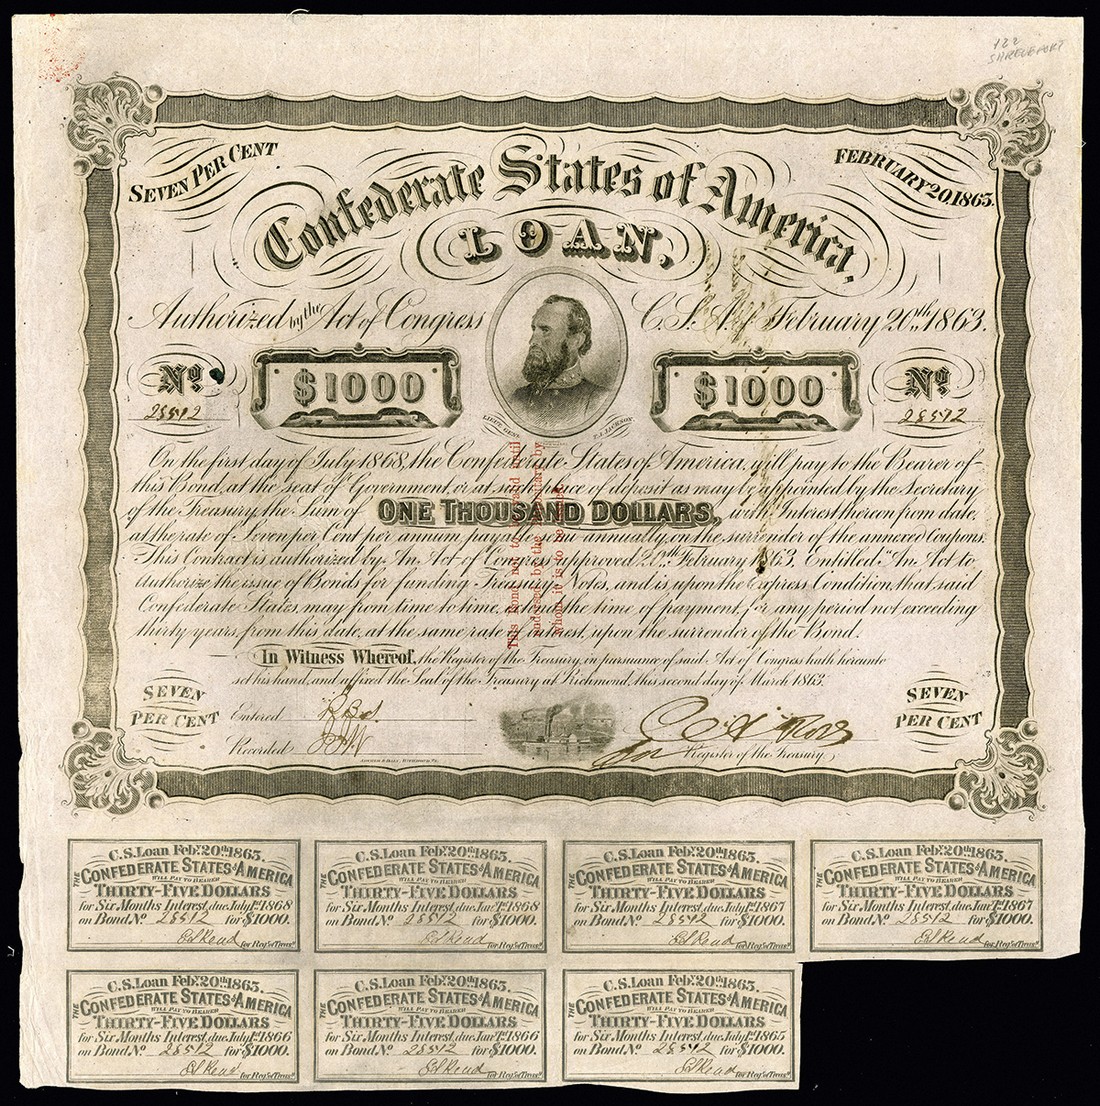 122
SHREVEPORT
SEVEN PER CENT
FEBRUARY 20, 1863.
Confederate States of America.
LOAN,
Authorized by the Act of Congress C.S.A. of February 20th 1863.
No. 28512
$1000
$1000
No 28512
LIEUT. GENL. T.J. JACKSON.
On the first day of July 1868, the Confederate States of America, will pay to the Bearer of
this Bond, at the seat of Government, or at such place of deposit as may be appointed by the Secretary
of the Treasury, the Sum of ONE THOUSAND DOLLARS, with Interest thereon from date,
at the rate of Seven per Cent per annum, payable semi annually, on the surrender of the annexed Coupons.
This Contract is authorized by An Act of Congress approved 20th February 1863, Entitled "An Act to
authorize the issue of Bonds for funding Treasury Notes, and is upon the Express Condition, that said
Confederate States, may from time to time, extend the time of payment, for any period not exceeding
thirty years, from this date, at the same rate of interest, upon the surrender of the Bond.
This Bond not to be paid until
endorsed by the Depositary by
whom it is to be issued.
In Witness Whereof, the Register of the Treasury, in pursuance of said Act of Congress hath hereunto
set his hand, and affixed the Seal of the Treasury at Richmond, this second day of March 1863.
SEVEN
PER CENT
Entered
Recorded
for Register of the Treasury.
SEVEN
PER CENT
C.S. Loan Feby. 20th 1863.
THE CONFEDERATE STATES OF AMERICA
WILL PAY TO BEARER
THIRTY-FIVE DOLLARS
for Six Months Interest, due July 1st 1868
on Bond No 28512 for $1000.
for Regr. of Treasy.
C.S. Loan Feby. 20th 1863.
THE CONFEDERATE STATES OF AMERICA
WILL PAY TO BEARER
THIRTY-FIVE DOLLARS
for Six Months Interest, due Jany. 1st 1868
on Bond No 28512 for $1000.
for Regr. of Treasy.
C.S. Loan Feby. 20th 1863.
THE CONFEDERATE STATES OF AMERICA
WILL PAY TO BEARER
THIRTY-FIVE DOLLARS
for Six Months Interest, due July 1st 1867
on Bond No 28512 for $1000.
for Regr. of Treasy.
C.S. Loan Feby. 20th 1863.
THE CONFEDERATE STATES OF AMERICA
WILL PAY TO BEARER
THIRTY-FIVE DOLLARS
for Six Months Interest, due Jany. 1st 1867
on Bond No 28512 for $1000.
for Regr. of Treasy.
C.S. Loan Feby. 20th 1863.
THE CONFEDERATE STATES OF AMERICA
WILL PAY TO BEARER
THIRTY-FIVE DOLLARS
for Six Months Interest, due July 1st 1866
on Bond No 28512 for $1000.
for Regr. of Treasy.
C.S. Loan Feby. 20th 1863.
THE CONFEDERATE STATES OF AMERICA
WILL PAY TO BEARER
THIRTY-FIVE DOLLARS
for Six Months Interest, due Jany. 1st 1866
on Bond No 28512 for $1000.
for Regr. of Treasy.
C.S. Loan Feby. 20th 1863.
THE CONFEDERATE STATES OF AMERICA
WILL PAY TO BEARER
THIRTY-FIVE DOLLARS
for Six Months Interest, due July 1st 1865
on Bond No 28512 for $1000.
for Regr. of Treasy.